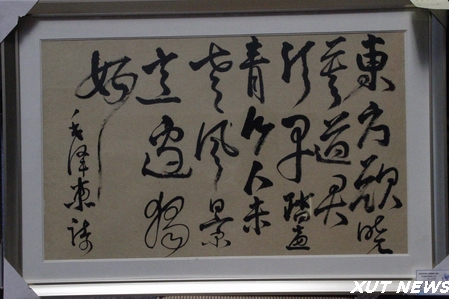 東方欲曉
莫道君
行早踏遍
青山人未
老風景
這邊獨
好
毛澤東詩
XUT NEWS